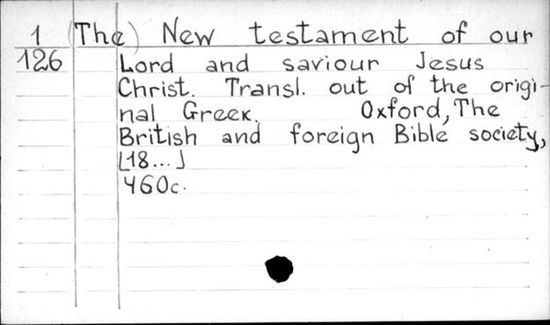 1 (The) New testament of our
126 Lord and saviour Jesus
Christ. Transl. out of the origi-
nal Greek. Oxford, The
British and foreign Bible society,
[18...]
460c.